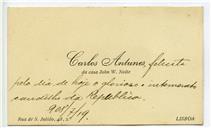 Carlos Antunes, felicita
da casa John W. Nolte
pelo dia de hoje o glorioso e intemerato
caudilho da Republica.
908/2/19.
Rua de S. Julião,
LISBOA